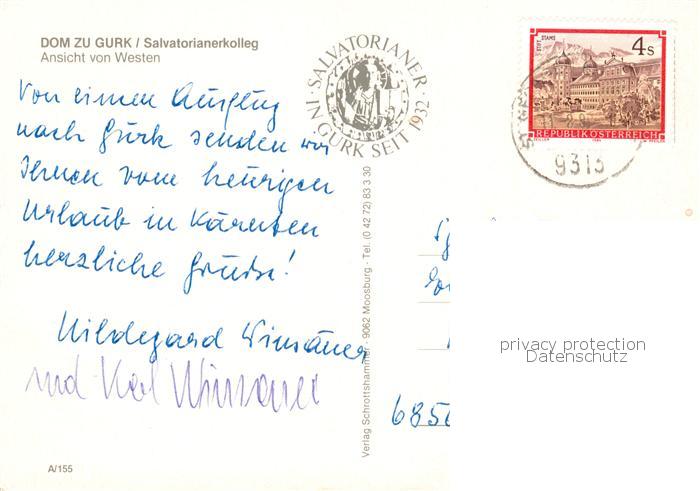 DOM ZU GURK / Salvatorianerkolleg
Ansicht von Westen
SALVATORIANER · IN GURK SEIT 1932 ·
STIFT STAMS
4 S
REPUBLIK ÖSTERREICH
9313
Von einem Ausflug
nach Gurk senden wir
Ihnen vom heurigen
Urlaub in Kärnten
herzliche Grüße!
Hildegard Winsauer
und Karl Winsauer
Verlag Schrottshammer · 9062 Moosburg · Tel. (0 42 72) 83 3 30
privacy protection
Datenschutz
A/155